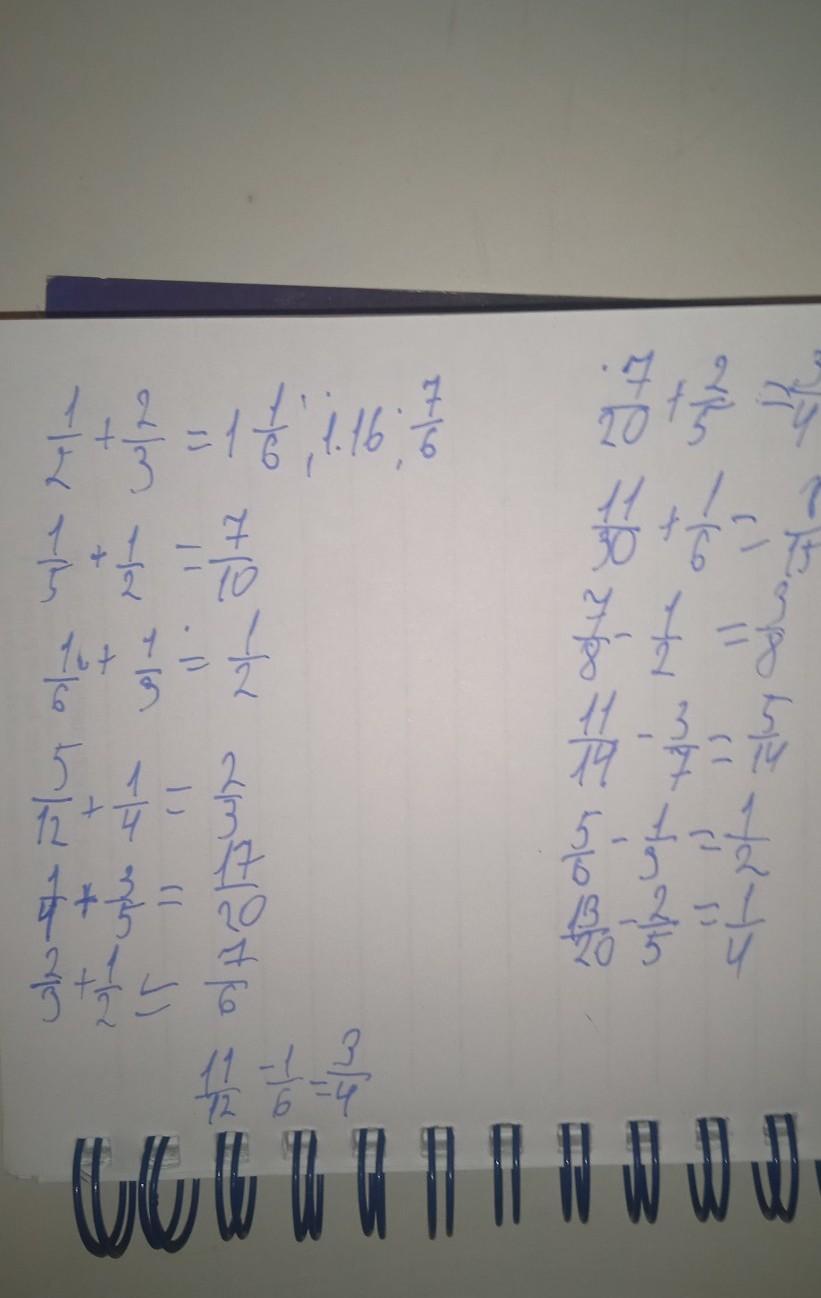 1/2 + 2/3 = 1 1/6 ; 1.16 ; 7/6
1/5 + 1/2 = 7/10
1/6 + 1/3 = 1/2
5/12 + 1/4 = 2/3
1/4 + 3/5 = 17/20
2/3 + 1/2 = 7/6
11/12 - 1/6 = 3/4
7/20 + 2/5 = 3/4
11/30 + 1/6 = 8/15
7/8 - 1/2 = 3/8
11/14 - 3/7 = 5/14
5/6 - 1/3 = 1/2
13/20 - 2/5 = 1/4